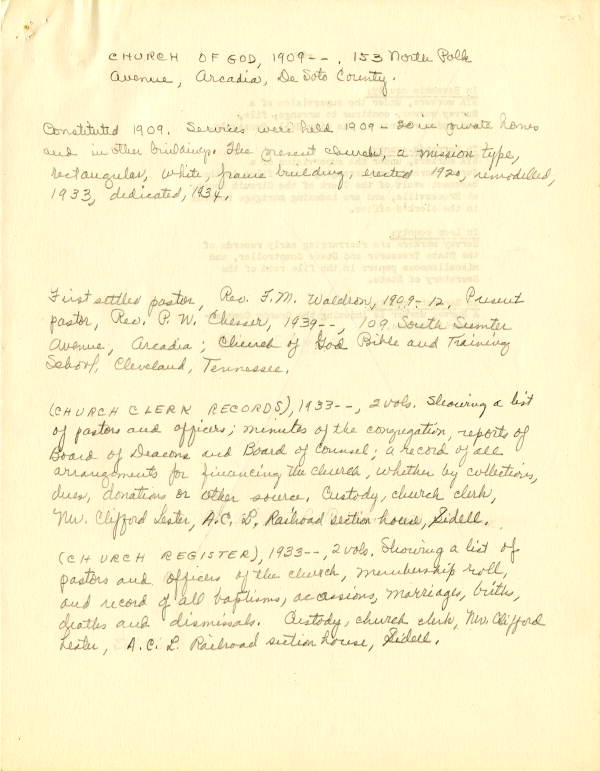 CHURCH OF GOD, 1909--. 153 North Polk
Avenue, Arcadia, De Soto County.
Constituted 1909. Services were held 1909-20 in private homes
and in other buildings. The present church, a mission type,
rectangular, white, frame building, erected 1920, remodelled,
1933, dedicated, 1934.
First settled pastor, Rev. F.M. Waldron, 1909-12. Present
pastor, Rev. P.W. Chesser, 1939--, 109 South Sumter
Avenue, Arcadia; Church of God Bible and Training
School, Cleveland, Tennessee.
(CHURCH CLERK RECORDS), 1933--, 2 vols. Showing a list
of pastors and officers; minutes of the congregation, reports of
Board of Deacons and Board of Counsel; a record of all
arrangements for financing the church, whether by collections,
dues, donations or other source. Custody, church clerk,
Mr. Clifford Lester, A.C.L. Railroad section house, Sidell.
(CHURCH REGISTER), 1933--, 2 vols. Showing a list of
pastors and officers of the church, membership roll,
and record of all baptisms, accessions, marriages, births,
deaths and dismissals. Custody, church clerk, Mr. Clifford
Lester, A.C.L. Railroad section house, Sidell.